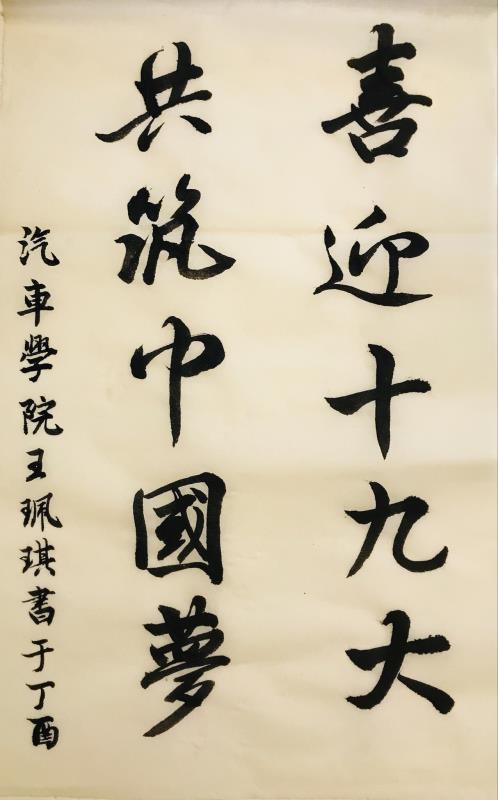 喜迎十九大
共筑中國夢
汽車學院王珮琪書于丁酉